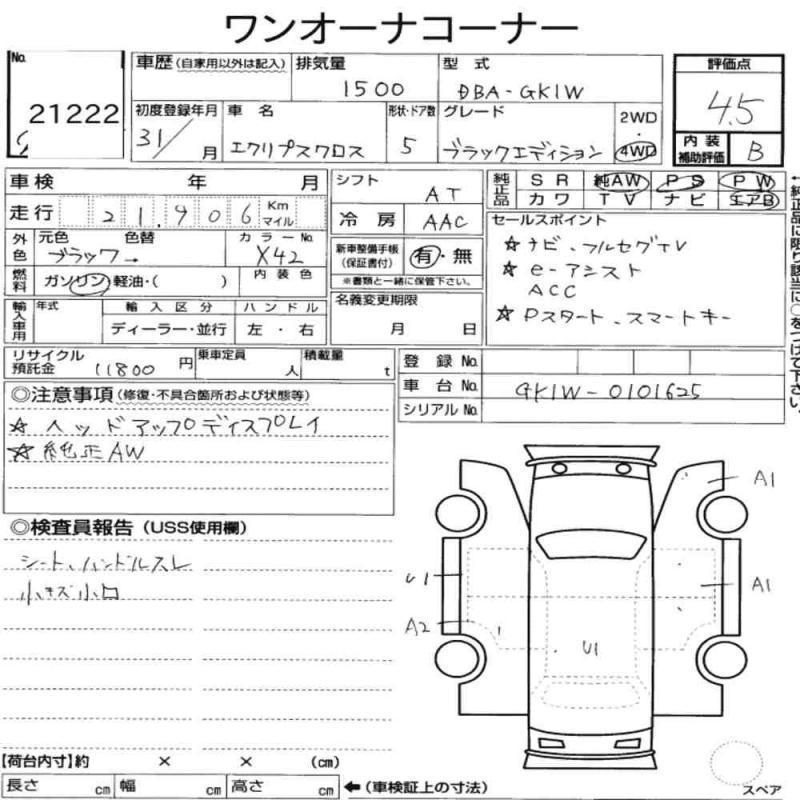 ワンオーナコーナー
No. 21222
車歴 (自家用以外は記入) 排気量 1500 型式 DBA-GK1W
評価点 4.5
初度登録年月 31/ 月 車名 エクリプスクロス 形状・ドア数 5 グレード ブラックエディション 2WD・4WD
内装補助評価 B
車検 年 月
走行 21,906 Km マイル
シフト AT
冷房 AAC
純正品 SR 純AW PS PW
カワ TV ナビ エアB
外色 元色 ブラック→ 色替 カラーNo. X42
燃料 ガソリン・軽油・( ) 内装色
新車整備手帳 (保証書付) 有・無
※書類と一緒に保管下さい。
セールスポイント
☆ナビ、フルセグTV
☆e-アシスト
ACC
☆Pスタート、スマートキー
輸入車用 年式 輸入区分 ハンドル
ディーラー・並行 左・右
名義変更期限
月 日
リサイクル預託金 11800円 乗車定員 人 積載量 t
登録No.
車台No. GK1W-0101625
シリアルNo.
←純正品に限り該当に○をつけて下さい。
◎注意事項 (修復・不具合箇所および状態等)
☆ヘッドアップディスプレイ
☆純正AW
◎検査員報告 (USS使用欄)
シート、ハンドルスレ
小キズ小凹
A1
U1
A1
A2
U1
【荷台内寸】約 × × (cm)
長さ cm 幅 cm 高さ cm ←(車検証上の寸法)
スペア